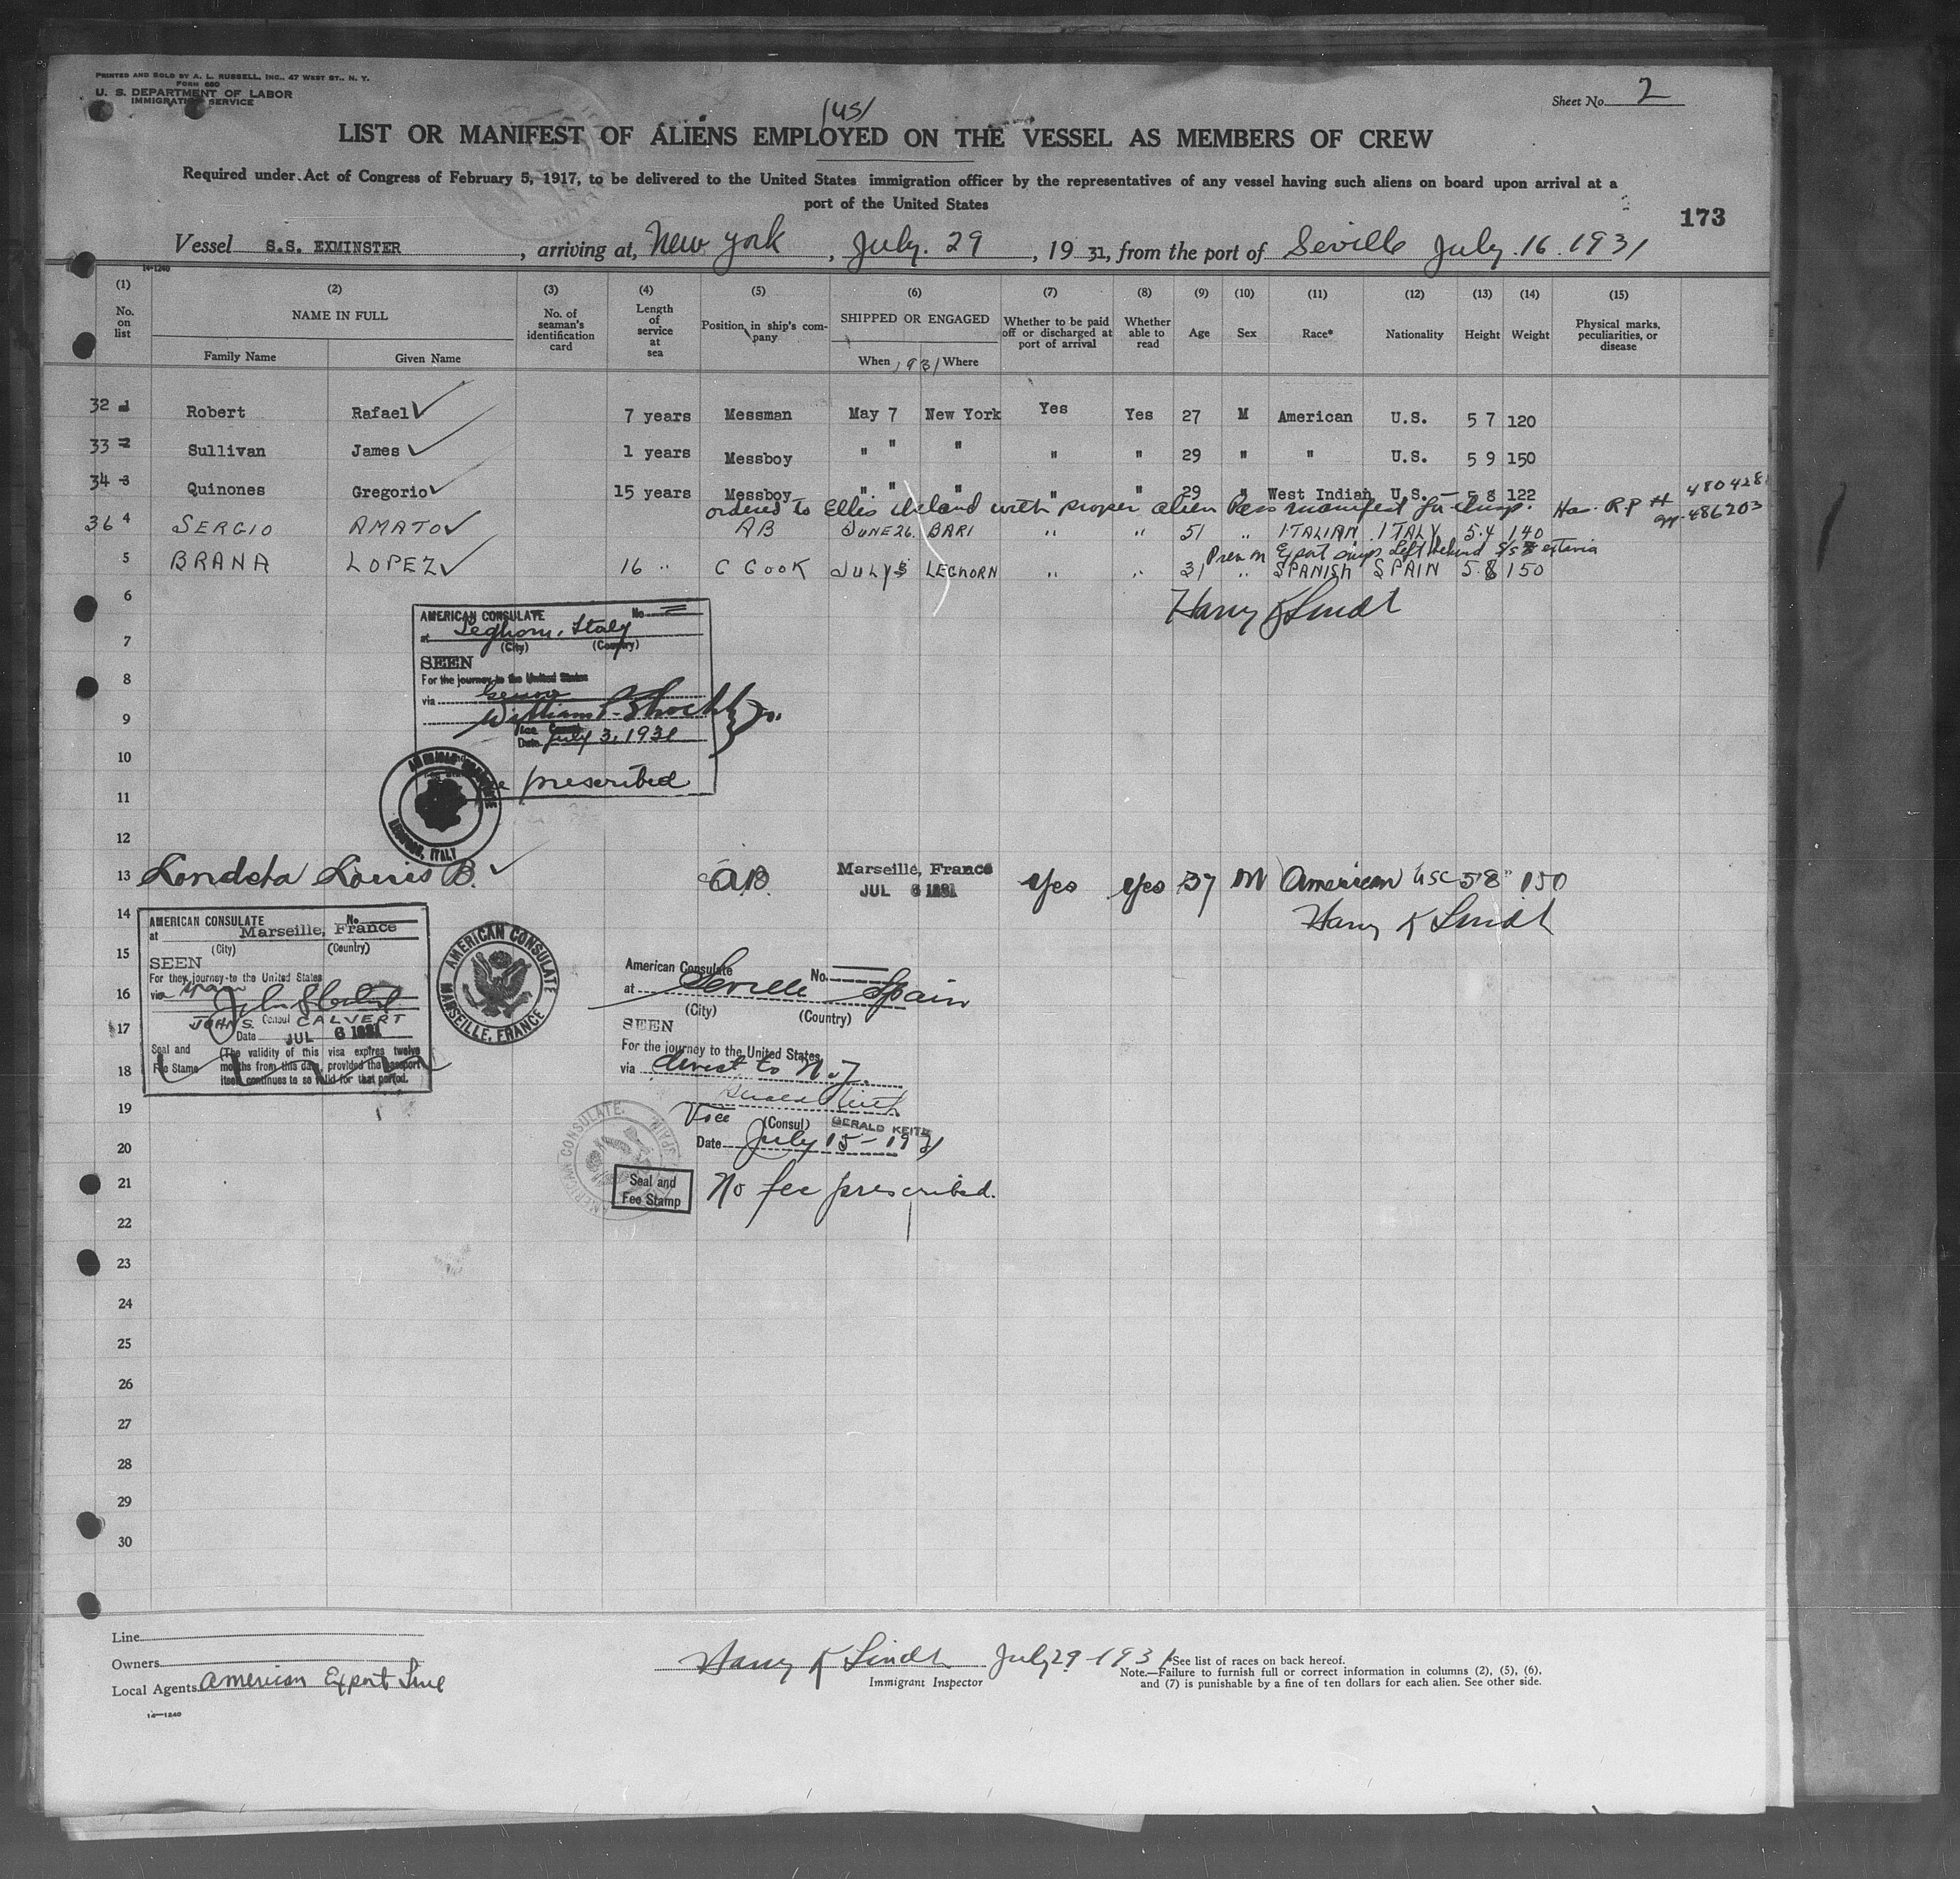 PRINTED AND SOLD BY A. L. RUSSELL, INC., 47 WEST ST., N. Y.
FORM 680
U. S. DEPARTMENT OF LABOR
IMMIGRATION SERVICE
Sheet No. 2
(US)
LIST OR MANIFEST OF ALIENS EMPLOYED ON THE VESSEL AS MEMBERS OF CREW
Required under Act of Congress of February 5, 1917, to be delivered to the United States immigration officer by the representatives of any vessel having such aliens on board upon arrival at a
port of the United States
173
Vessel S.S. EXMINSTER, arriving at, New York, July. 29, 1931, from the port of Seville July. 16. 1931
14-1240
(1) (2) (3) (4) (5) (6) (7) (8) (9) (10) (11) (12) (13) (14) (15)
No. on list NAME IN FULL Family Name Given Name No. of seaman's identification card Length of service at sea Position in ship's company SHIPPED OR ENGAGED When 1931 Where Whether to be paid off or discharged at port of arrival Whether able to read Age Sex Race* Nationality Height Weight Physical marks, peculiarities, or disease
32 1 Robert Rafael 7 years Messman May 7 New York Yes Yes 27 M American U.S. 5 7 120
33 2 Sullivan James 1 years Messboy " " " " " 29 " " U.S. 5 9 150
34 3 Quinones Gregorio 15 years Messboy " " " " " 29 " West Indian U.S. 5 8 122
ordered to Ellis Island with proper alien Pass manifest for insp. Has R.P #
36 4 SERGIO AMATO AB JUNE 26. BARI " " 51 " ITALIAN ITALY 5.4 140
Left behind
5 BRANA LOPEZ 16 " C COOK JULY 3 LEGHORN " " 31 " SPANISH SPAIN 5.8 150
6
Harry K Lindt
AMERICAN CONSULATE No.
at Leghorn, Italy
(City) (Country)
7
SEEN
8
For the journey to the United States
via Genoa
9
Date July 3, 1931
10
prescribed
11
LEGHORN, ITALY
12
13 Louis B. A.B. Marseille, France JUL 6 1931 yes yes 37 M American USC 5'8" 150
Harry K Lindt
14
AMERICAN CONSULATE No.
at Marseille, France
(City) (Country)
SEEN
For the journey to the United States
via
JOHN S. Consul CALVERT
Date JUL 6 1931
Seal and Fee Stamp
(The validity of this visa expires twelve
months from this date, provided the passport
itself continues to be valid for that period.
AMERICAN CONSULATE
MARSEILLE, FRANCE
15
American Consulate No.
at Seville Spain
16
(City) (Country)
17
SEEN
For the journey to the United States
18
via direct to N.Y.
19
Vice (Consul) GERALD KEITH
20
Date July 15 - 1931
AMERICAN CONSULATE
SPAIN
21
Seal and
Fee Stamp
No fee prescribed.
22
23
24
25
26
27
28
29
30
Line
Owners
Local Agents American Export Line
14-1240
Harry K Lindt July 29 1931
Immigrant Inspector
*See list of races on back hereof.
Note.—Failure to furnish full or correct information in columns (2), (5), (6),
and (7) is punishable by a fine of ten dollars for each alien. See other side.